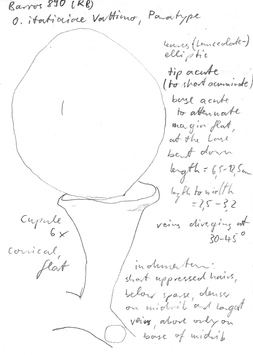 Barros 890 (RB)
O. itatiaiae Vattimo, Paratype
leaves (lanceolate-)
elliptic
tip acute
(to short acuminate)
base acute
to attenuate
margin flat,
at the base
bent down
length = 6,5-12,5cm
lgth to width
= 2,5-3,2
veins diverging at
30-45°
cupule
6x
conical,
flat
indumentum:
short appressed hairs,
below sparse, denser
on midrib and largest
veins, above only on
base of midrib